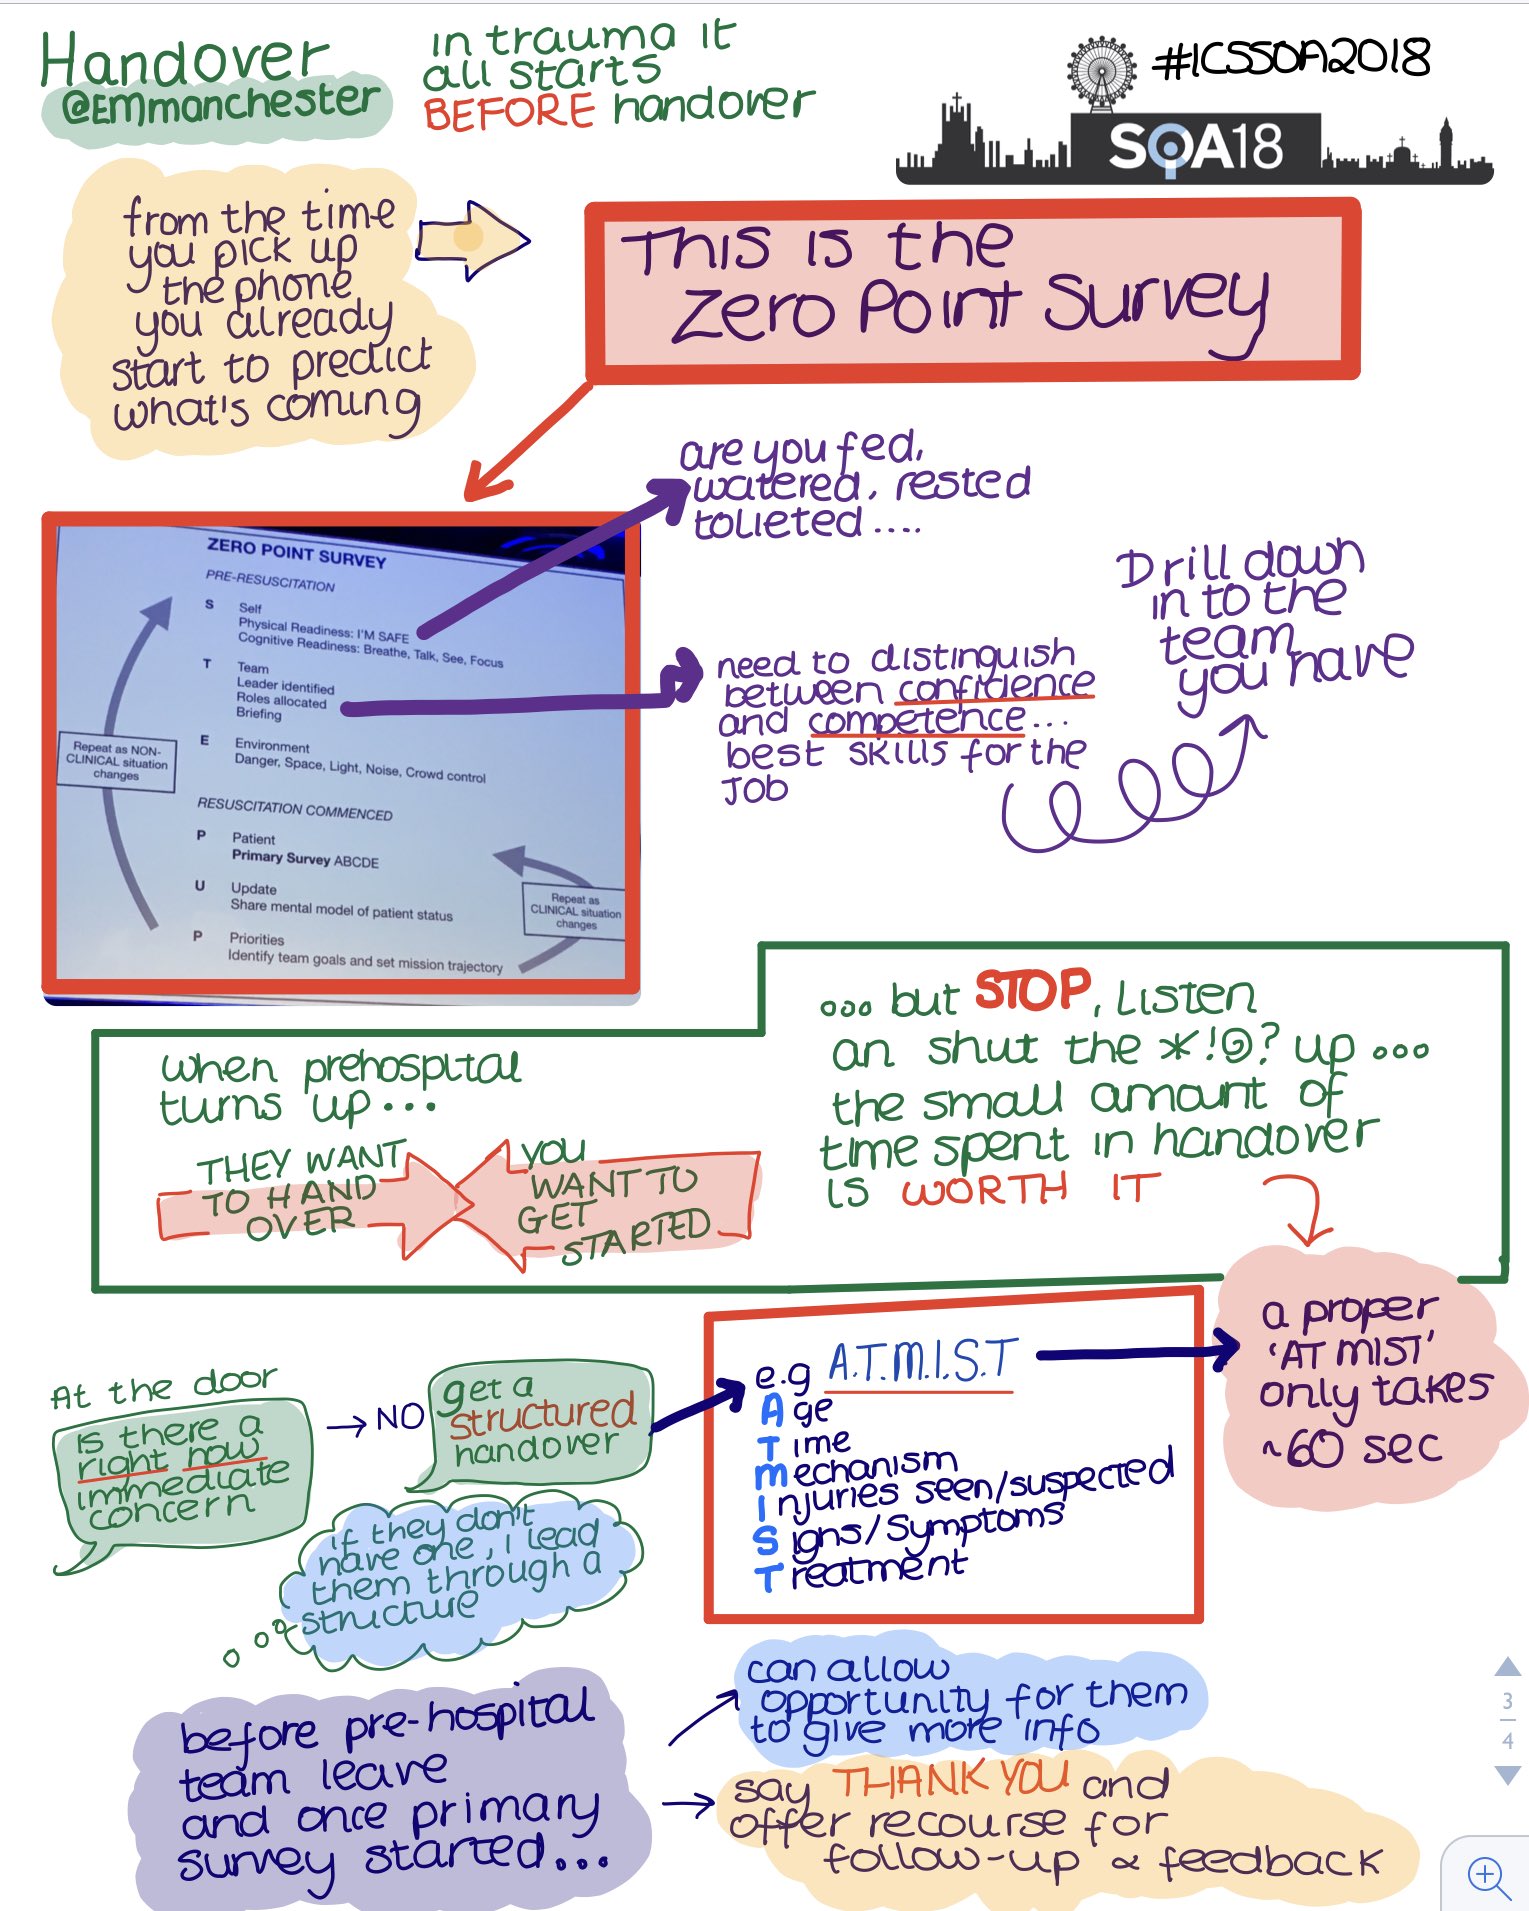 Handover
@EMmanchester
in trauma it
all starts
BEFORE handover
#ICSSOA2018
SOA18
from the time
you pick up
the phone
you already
start to predict
what's coming
This is the
Zero Point Survey
are you fed,
watered, rested
tolieted ....
ZERO POINT SURVEY
PRE-RESUSCITATION
S Self
Physical Readiness: I'M SAFE
Cognitive Readiness: Breathe, Talk, See, Focus
T Team
Leader identified
Roles allocated
Briefing
E Environment
Danger, Space, Light, Noise, Crowd control
RESUSCITATION COMMENCED
P Patient
Primary Survey ABCDE
U Update
Share mental model of patient status
P Priorities
Identify team goals and set mission trajectory
Repeat as NON-
CLINICAL situation
changes
Repeat as
CLINICAL situation
changes
need to distinguish
between confidence
and competence...
best skills for the
job
Drill down
in to the
team
you have
when prehospital
turns up...
THEY WANT
TO HAND
OVER
YOU
WANT TO
GET
STARTED
... but STOP, Listen
an shut the *!@? up ...
the small amount of
time spent in handover
is WORTH IT
a proper
'AT MIST'
only takes
~60 sec
At the door
is there a
right now
immediate
concern
NO
get a
structured
handover
if they don't
have one, I lead
them through a
structure
e.g A.T.M.I.S.T
Age
Time
Mechanism
Injuries seen/suspected
Signs/Symptoms
Treatment
before pre-hospital
team leave
and once primary
survey started...
can allow
opportunity for them
to give more info
say THANK YOU and
offer recourse for
follow-up & feedback
3
4